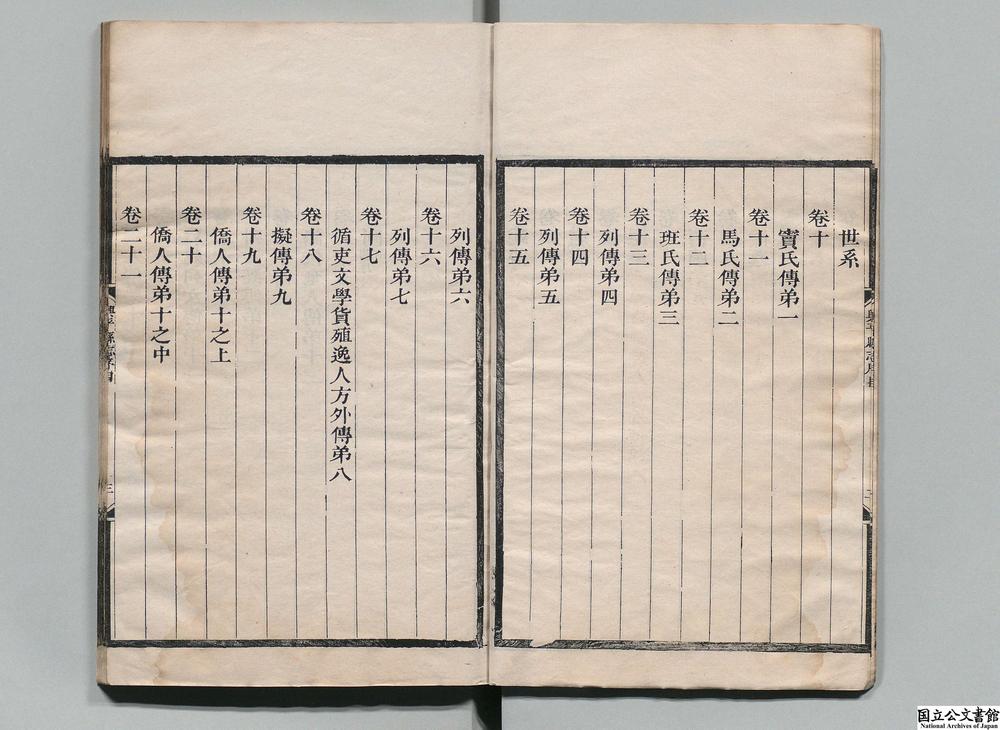 世系
卷十
竇氏傳弟一
卷十一
馬氏傳弟二
卷十二
班氏傳弟三
卷十三
列傳弟四
卷十四
列傳弟五
卷十五
列傳弟六
卷十六
列傳弟七
卷十七
循吏文學貨殖逸人方外傳弟八
卷十八
擬傳弟九
卷十九
僑人傳弟十之上
卷二十
僑人傳弟十之中
卷二十一
三
国立公文書館
National Archives of Japan